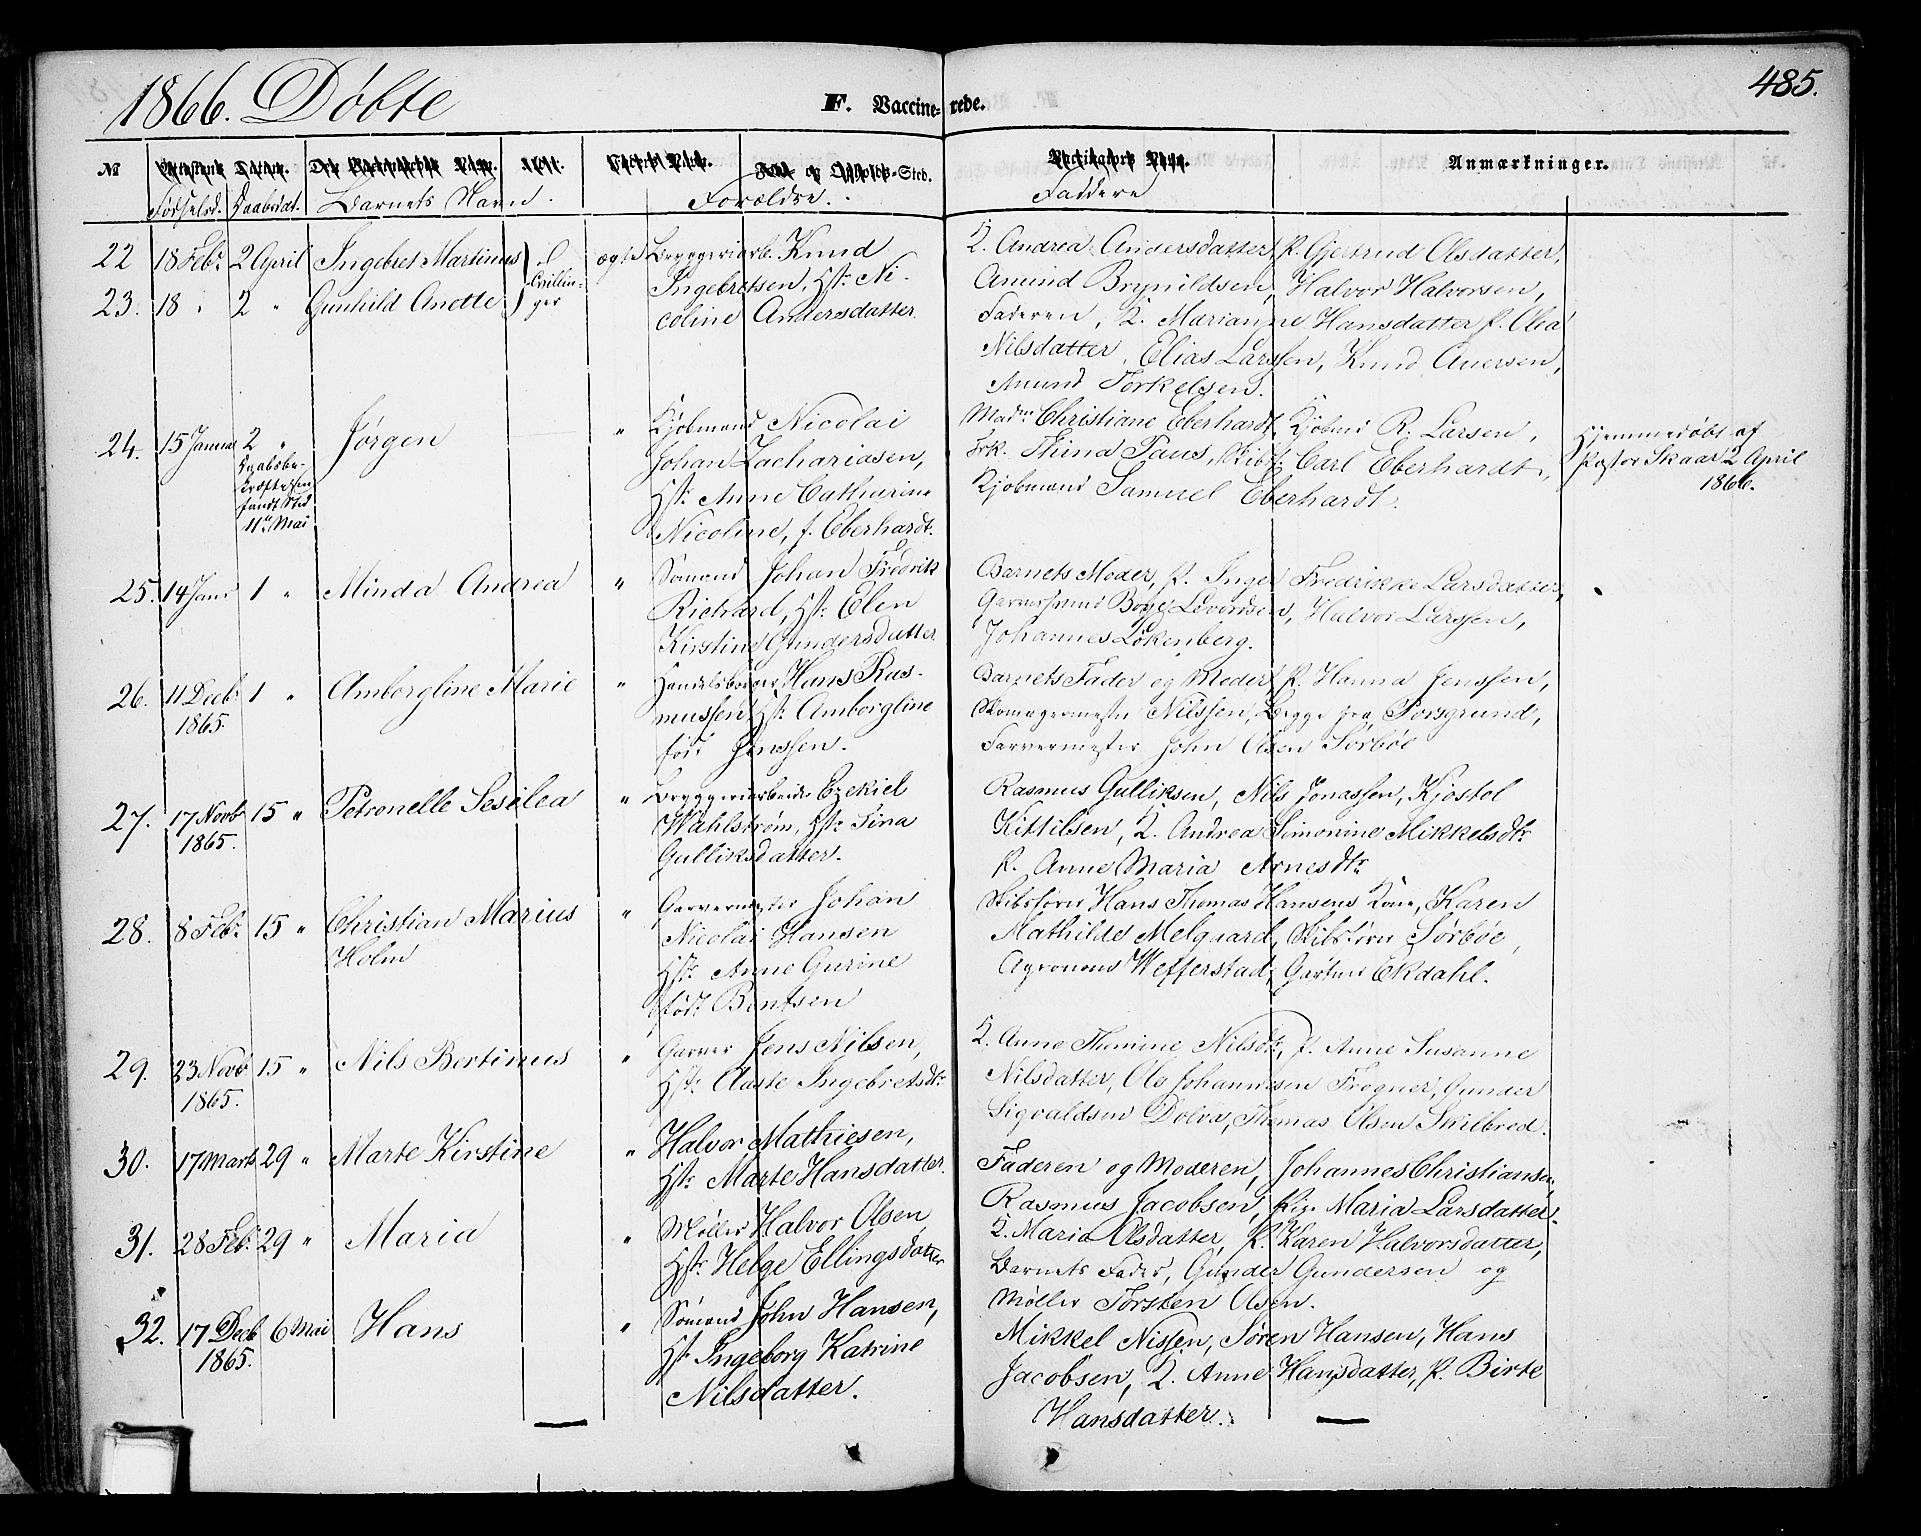 1866. Döbte
F. Vaccine-rede.
485.
No
Anmærkninger.
Fødselsd. Daabsdat. Barnets Navn. Forældre. Faddere
22 18 Febr 2 April Ingebret Martinus ægte Bryggeriarb. Knud
23. 18 " 2 " Gunhild Anette Tvillinger Ingebretsen, Hst: Ni-
coline Andersdatter
K. Andrea Andersdatter, P. Gjertrud Olsdatter,
Amund Brynildsen, Halvor Halvorsen,
Faderen, K. Marianne Hansdatter P. Olea
Nilsdatter, Elias Larssen, Knud
Amund Torkelsen.
24. 15 Januar 2 " Jørgen " Kjøbmand Nicolai
Daabsbe-
kræftelsen
fandt Sted
11te Mai
Johan Zachariasen,
Hst: Anne Cathrine
Nicoline, f. Eberhardt.
Madm Christiane Eberhardt, Kjøbmd R. Larsen,
Frk. Thina Paus, Skibsf. Carl Eberhardt,
Kjøbmand Samuel Eberhardt.
Hjemmedøbt af
Pastor Skaar 2 April
1866.
25. 14 Janr 1 " Minda Andrea " Sømand Johan Fredrik
Richard, Hst: Elen
Kirstine Gundersdatter
Barnets Moder, P. Inger Fredrikke Larsdatter,
Garversvend Halvor Larssen,
Johannes Løkenberg.
26. 11 Decbr 1 " Amborgline Marie " Handelsborger Hans Ras-
1865.
mussen Hst: Amborgline
født Jenssen.
Barnets Fader og Moder, P. Hanna Jenssen,
Skomagermester Nilssen, begge fra Porsgrund,
Farvermester John Olsen Sørbøe
27. 17 Novb 15 " Petronelle Sesilea " Bryggeriarbeider Ezekiel
1865.
Wahlstrøm, Hst: Sina
Gulliksdatter.
Rasmus Gulliksen, Nils Jonassen, Kjøstol
Kittilsen, K. Andrea Simonine Mikkelsdtr
P. Anne Maria Arnesdtr
28. 8 Febr 15 " Christian Marius " Garvermester Johan
Holm
Nicolai Hansen
Hst: Anne Gurine
født Bentsen
Skibsfører Hans Thomas Hansens Kone, Karen
Mathilde Melgaard, Skibsfører Sørbøe,
Agronom Wefferstad, Gartner Ekdahl.
29. 23 Novb 15 " Nils Bertinus " Garver Jens Nilsen,
1865.
Hst: Aaste Ingebretsdtr
K. Anne Thomine Nilsdtr, P. Anne Susanne
Nilsdatter, Ole Johannesen Frogner, Gunder
Sigvaldsen Dolva, Thomas Olsen Skilbred.
30. 17 Marts 29 " Marte Kirstine " Halvor Mathiesen,
Hst: Marte Hansdatter.
Faderen og Moderen, Johannes Christiansen,
Rasmus Jacobsen, Pige Maria Larsdatter.
31. 28 Febr 29 " Maria " Møller Halvor Olsen
Hst: Helge Ellingsdatter
K. Maria Olsdatter, P. Karen Halvorsdatter,
Barnets Fader, Gunder Gundersen og
Møller Torsten Olsen.
32. 17 Decb 6 Mai Hans " Sømand John Hansen,
1865.
Hst: Ingeborg Katrine
Nilsdatter.
Mikkel Nissen, Søren Hansen, Hans
Jacobsen, K. Anne Hansdatter, P. Birte
Hansdatter.